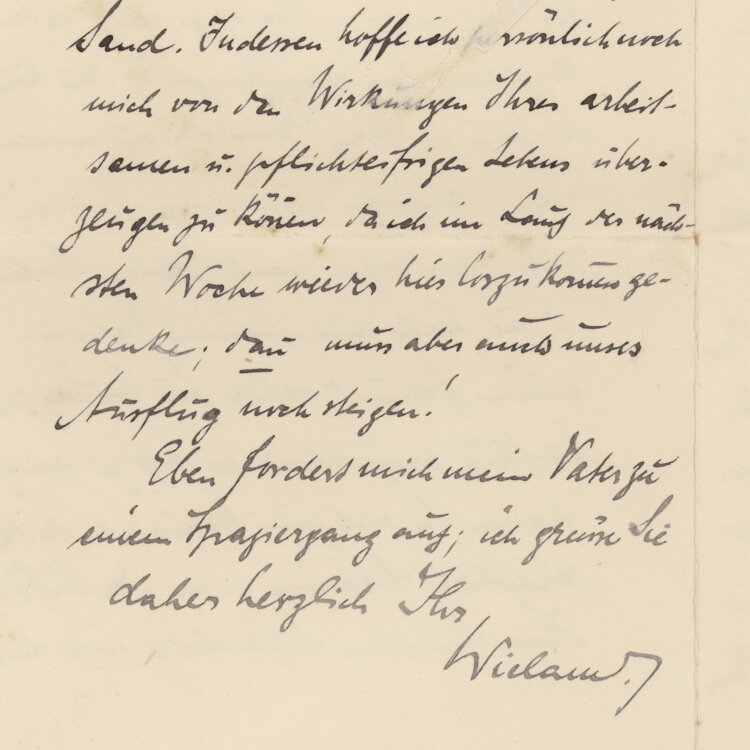 Sand. Indessen hoffe ich persönlich noch
mich von den Wirkungen Ihres arbeit-
samen u. pflichteifrigen Lebens über-
zeugen zu können, da ich im Lauf der näch-
sten Woche wieder hier loszukommen ge-
denke; dann muss aber auch unser
Ausflug noch steigen!
Eben fordert mich mein Vater zu
einem Spaziergang auf; ich grüsse Sie
daher herzlich Ihr
Wieland.